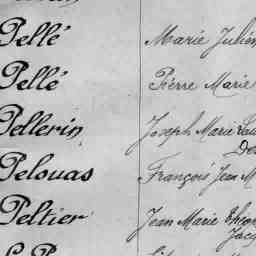 Pellé Marie Julien
Pellé Pierre Marie
Pellerin Joseph Marie
Pelouas François Jean M
Peltier Jean Marie